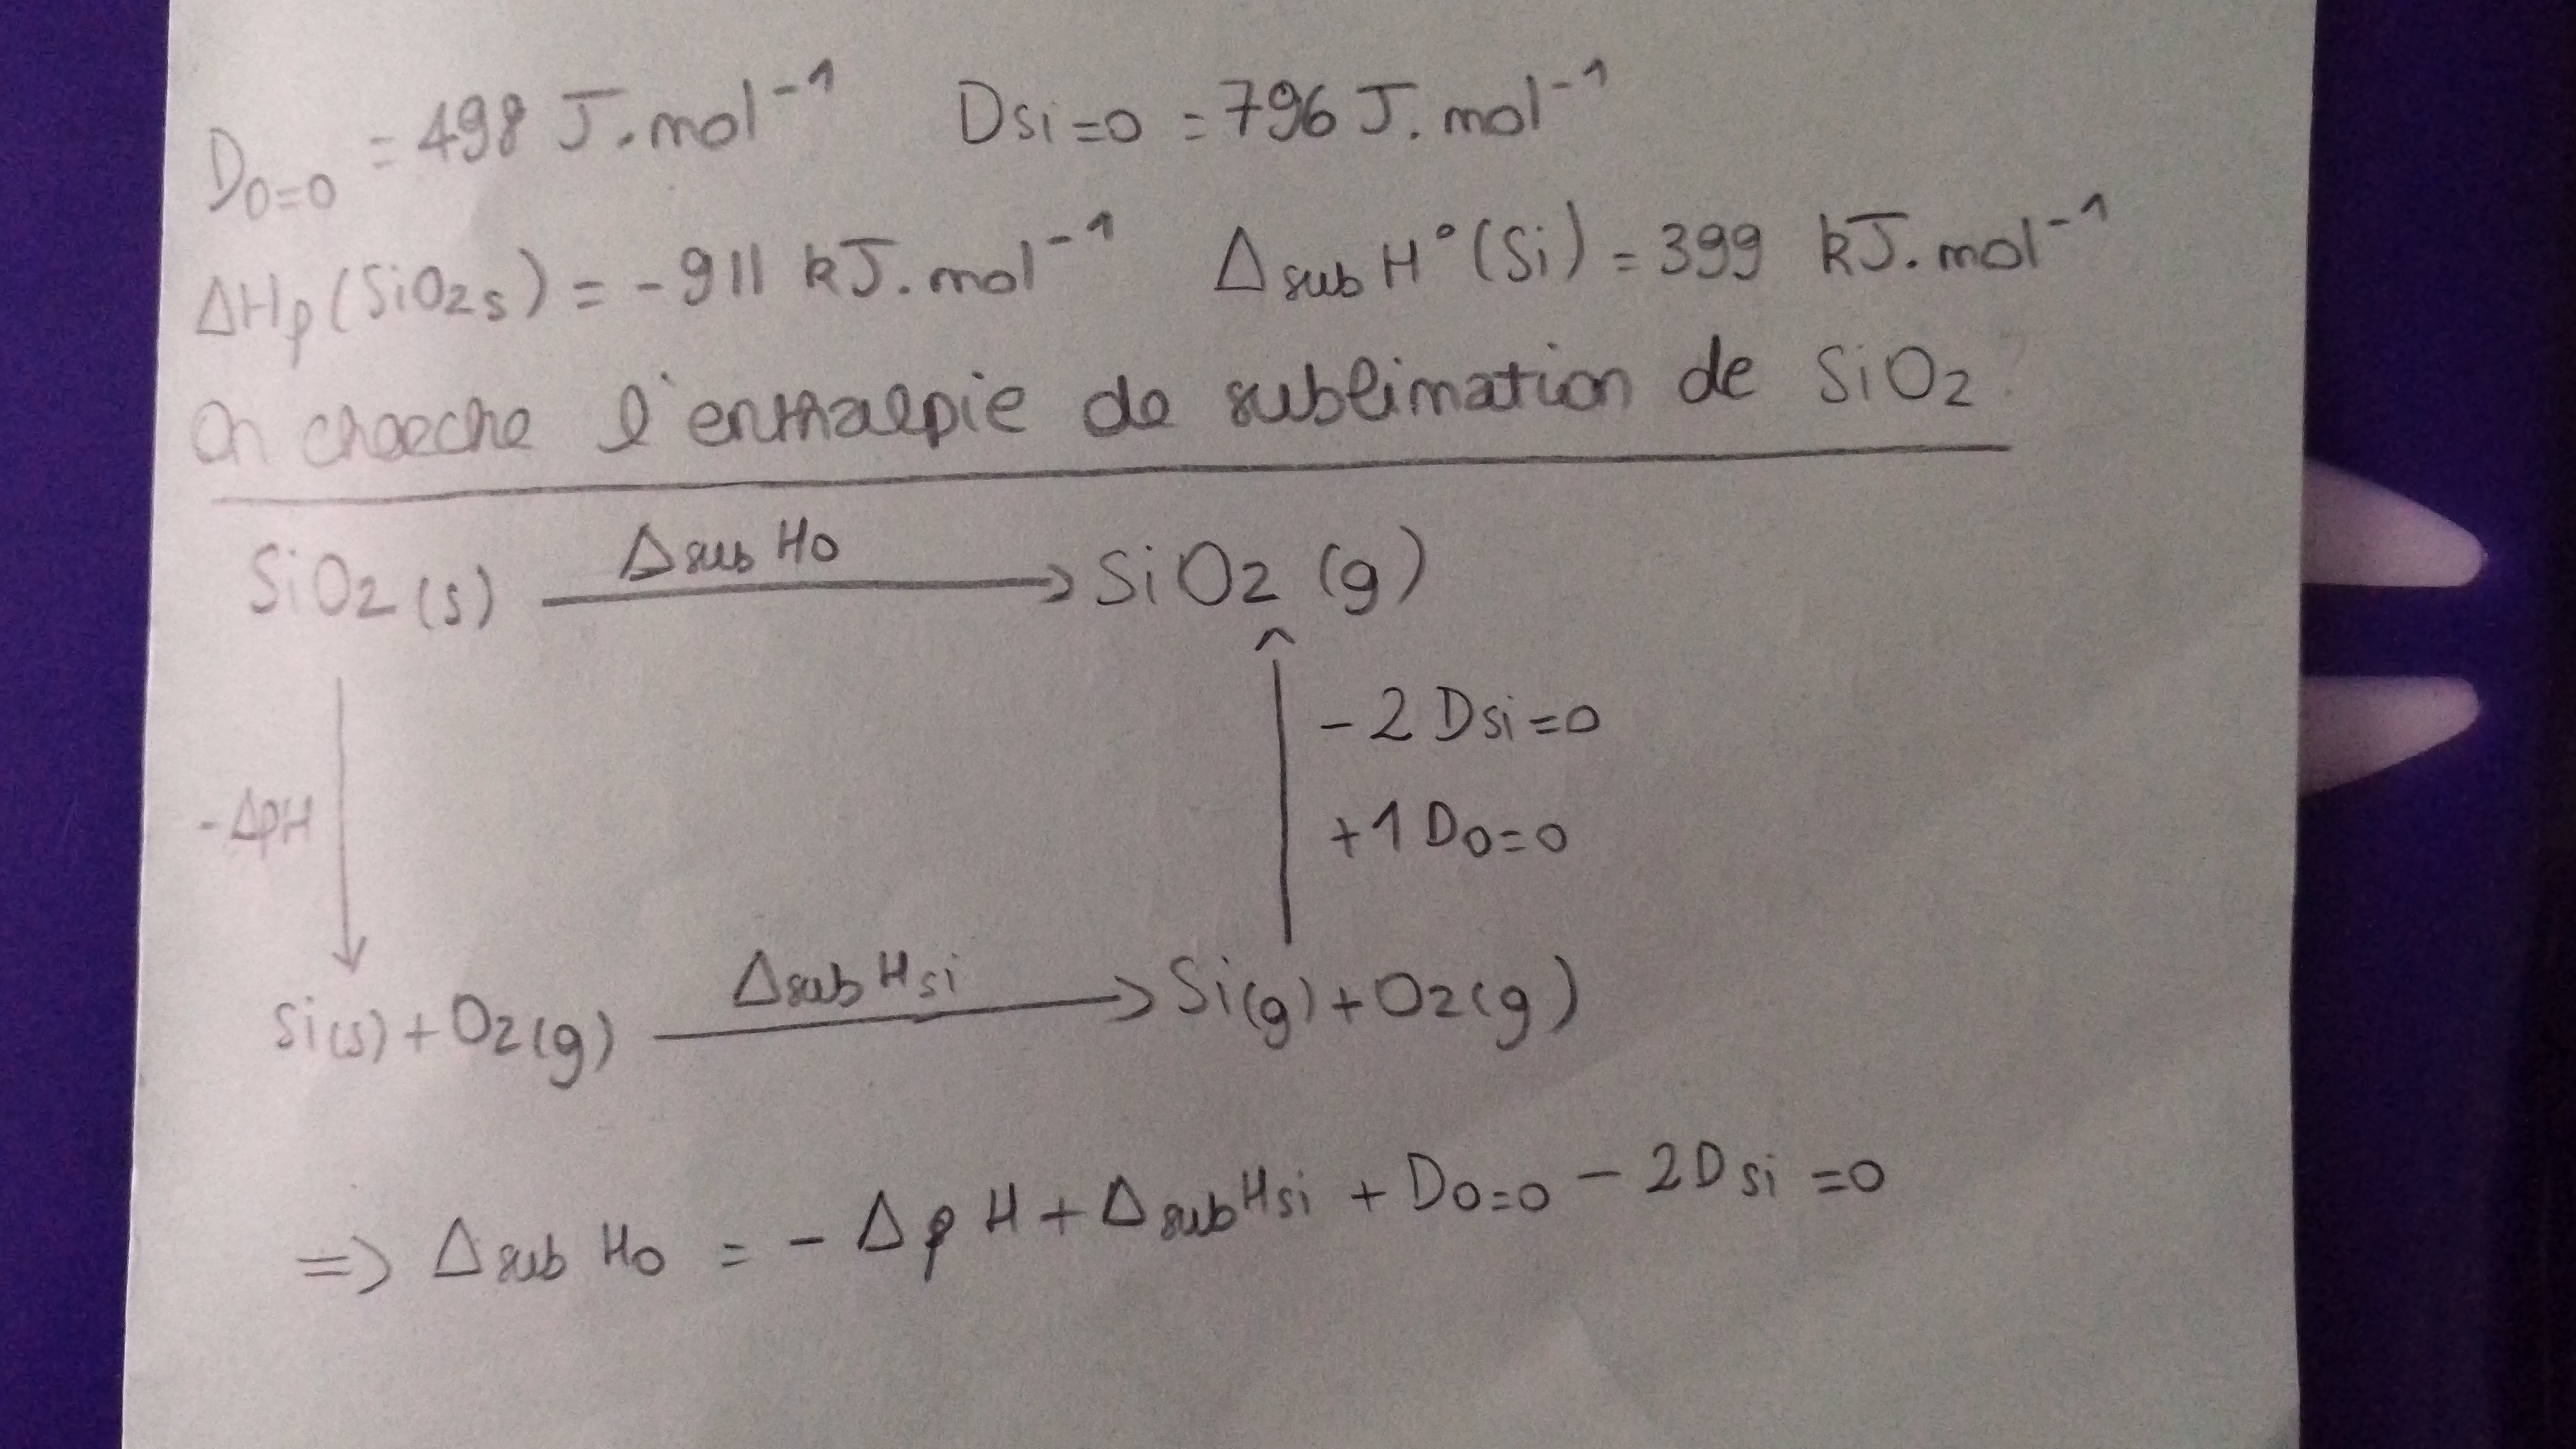 D_{O=O} = 498 J.mol⁻¹ D_{Si=O} = 796 J.mol⁻¹
ΔHf(SiO2s) = -911 kJ.mol⁻¹ Δsub H°(Si) = 399 kJ.mol⁻¹
On cherche l'enthalpie de sublimation de SiO2
SiO2(s) Δsub H0 → SiO2(g)
-2 D_{Si=O}
-ΔfH
+1 D_{O=O}
Si(s) + O2(g) Δsub Hsi → Si(g) + O2(g)
=> Δsub H0 = - Δf H + Δsub Hsi + D_{O=O} - 2D_{Si=O}